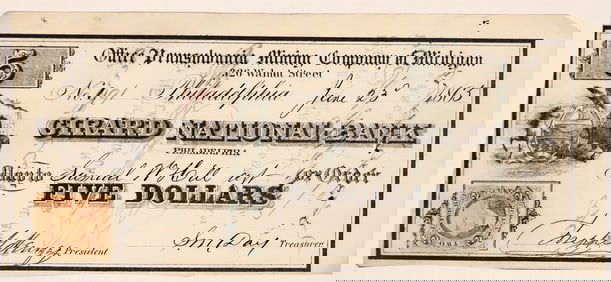 5
Office Pennsylvania Mining Company of Michigan
326 Walnut Street
No. Philadelphia June 23d 1865
GIRARD NATIONAL BANK
PHILADELPHIA
Pay to Samuel W. Hill or Order
FIVE DOLLARS
President
S M Day Treasurer